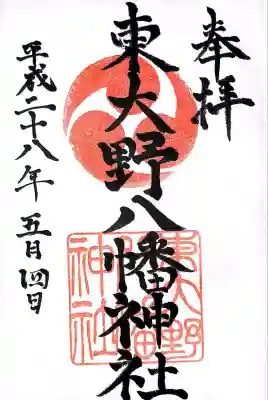 奉拝
東大野八幡神社
平成二十八年 五月四日
東大野
八幡
神社